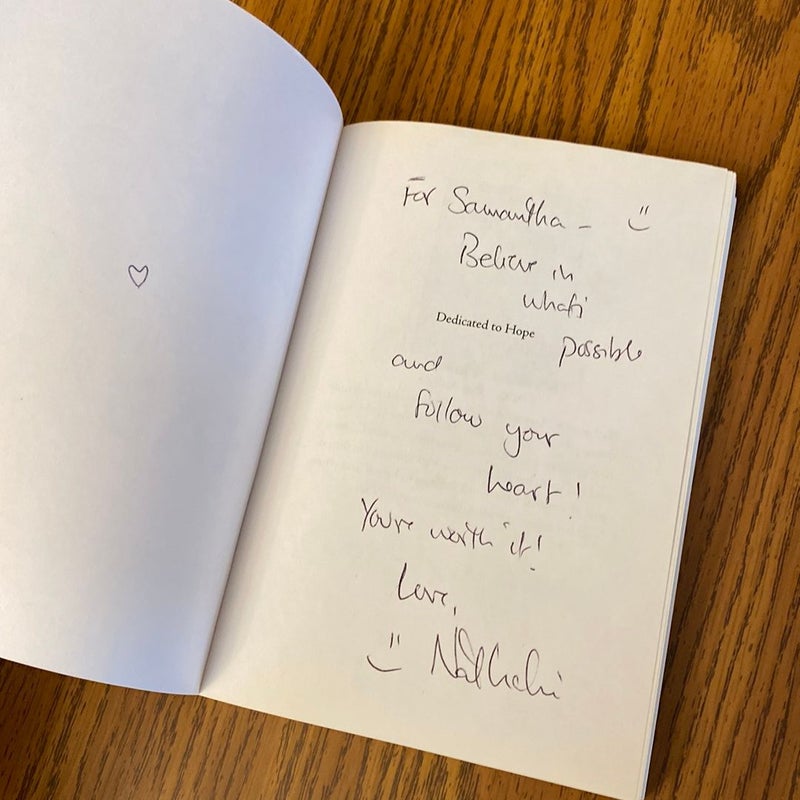 For Samantha –
Believe in
what's
Dedicated to Hope
possible
and
follow your
heart!
You're worth it!
Love,